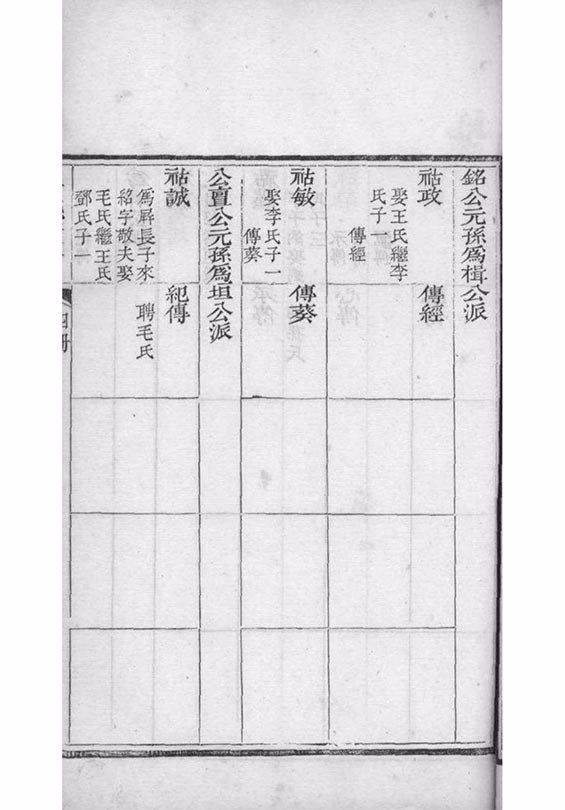 銘公元孫爲楫公派
祜政
娶王氏繼李
氏子一
傳經
傳經
祜敏
娶李氏子一
傳葵
傳葵
公賣公元孫爲坦公派
祜誠
爲屛長子來
紹字敬夫娶
毛氏繼王氏
鄧氏子一
紀傳
聘毛氏
四冊